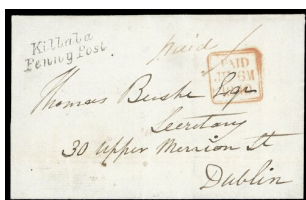 Killala
Penny Post.
paid
PAID
Thomas Bushe Esqr
Secretary
30 Upper Merrion St
Dublin